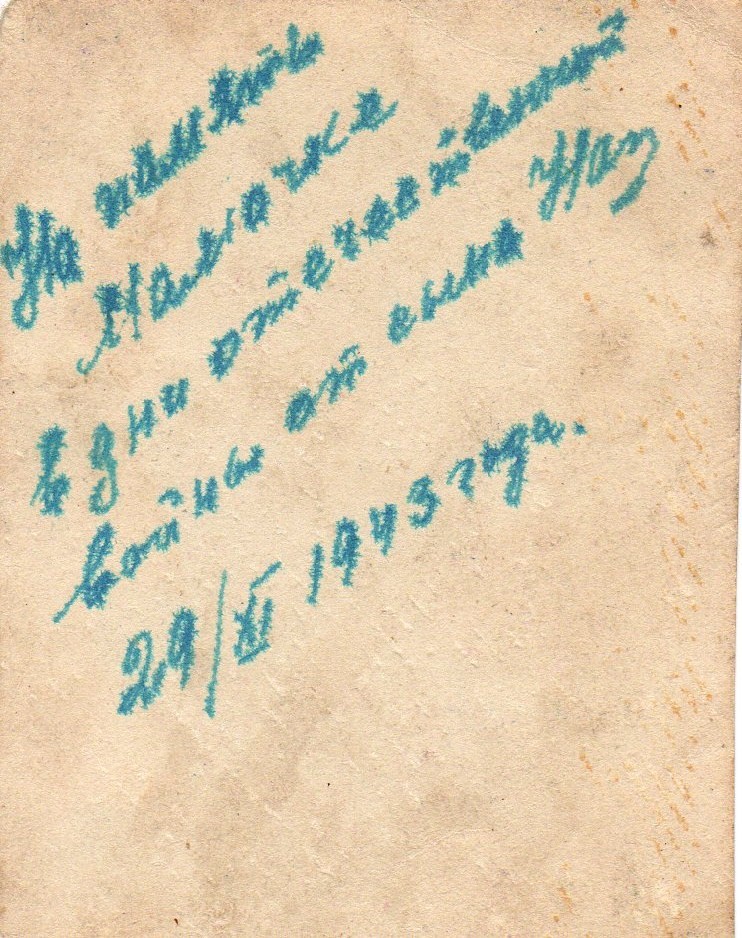 На память
Мамочке
в дни отечественной
войны от сына Наз
29/XI 1943 года.